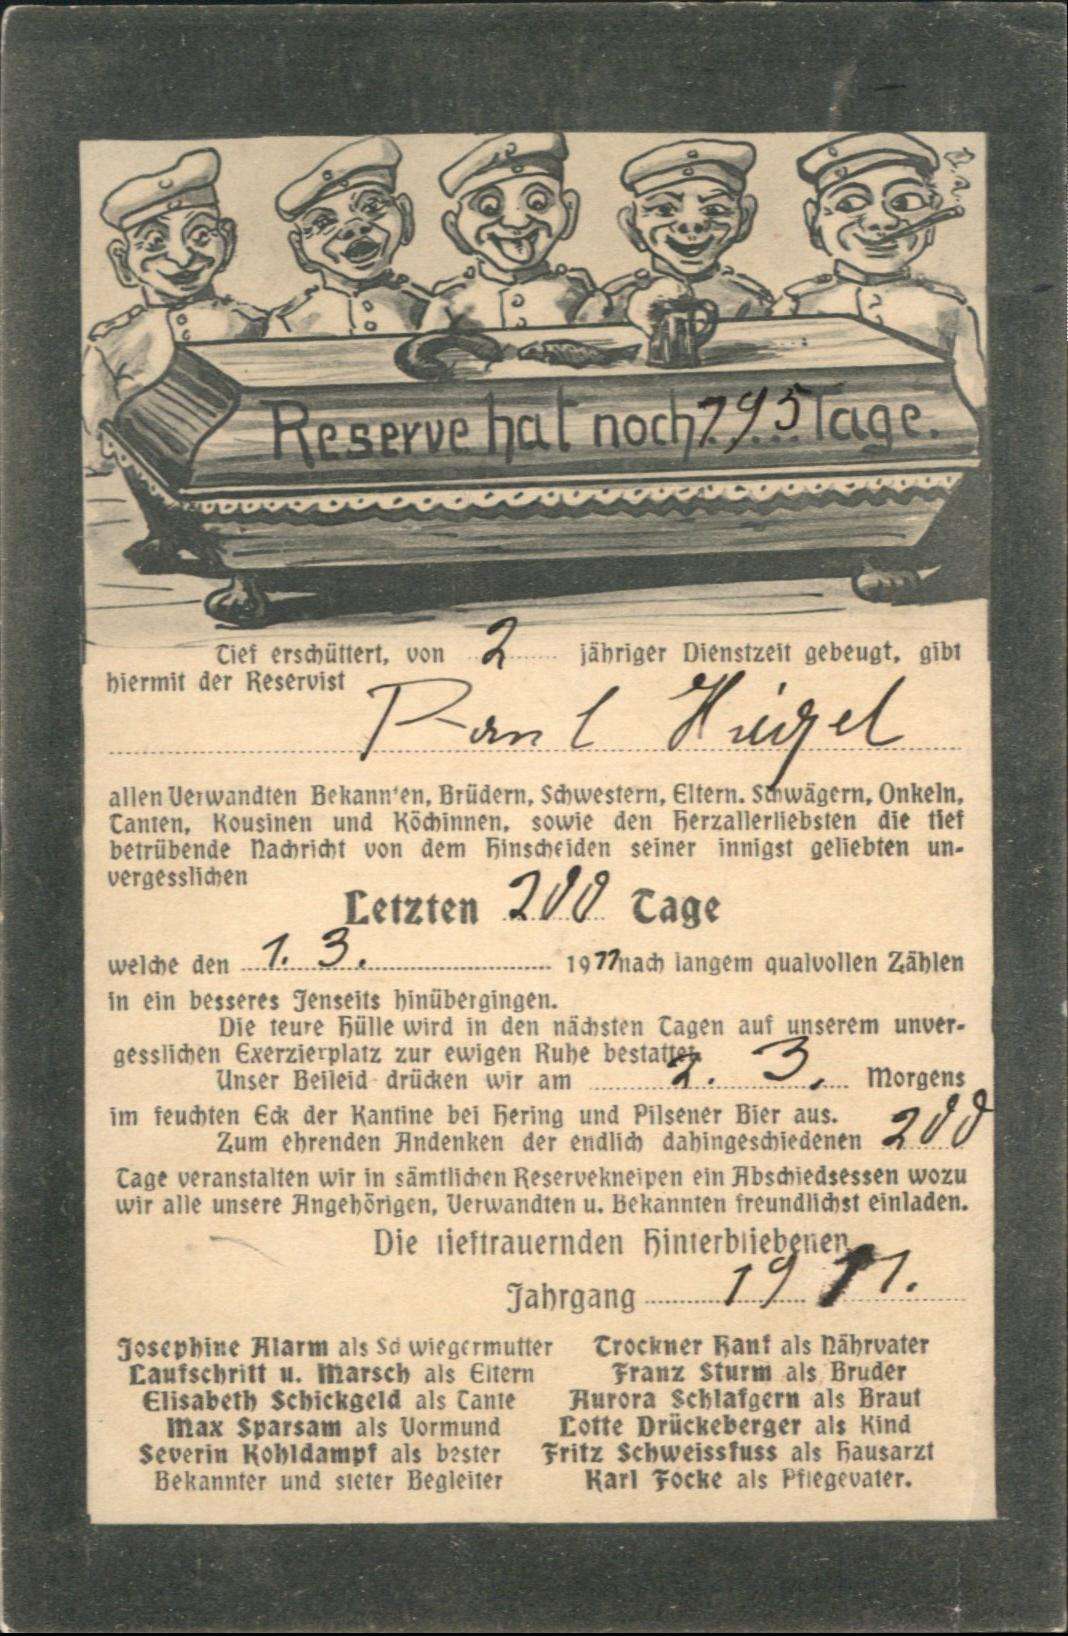 Reserve hat noch 195 Tage.
Tief erschüttert, von 2 jähriger Dienstzeit gebeugt, gibt
hiermit der Reservist
Paul Hügel
allen Verwandten Bekannten, Brüdern, Schwestern, Eltern. Schwägern, Onkeln,
Tanten, Kousinen und Köchinnen, sowie den Herzallerliebsten die tief
betrübende Nachricht von dem Hinscheiden seiner innigst geliebten un-
vergesslichen
Letzten 200 Tage
welche den 1. 3. 1911 nach langem qualvollen Zählen
in ein besseres Jenseits hinübergingen.
Die teure Hülle wird in den nächsten Tagen auf unserem unver-
gesslichen Exerzierplatz zur ewigen Ruhe bestattet.
Unser Beileid drücken wir am 2. 3. Morgens
im feuchten Eck der Kantine bei Hering und Pilsener Bier aus.
Zum ehrenden Andenken der endlich dahingeschiedenen 200
Tage veranstalten wir in sämtlichen Reservekneipen ein Abschiedsessen wozu
wir alle unsere Angehörigen, Verwandten u. Bekannten freundlichst einladen.
Die tieftrauernden Hinterbliebenen
Jahrgang 1911.
Josephine Alarm als Schwiegermutter
Laufschritt u. Marsch als Eltern
Elisabeth Schickgeld als Tante
Max Sparsam als Vormund
Severin Kohldampf als bester
Bekannter und steter Begleiter
Trockner Hanf als Nährvater
Franz Sturm als Bruder
Aurora Schlafgern als Braut
Lotte Drückeberger als Kind
Fritz Schweissfuss als Hausarzt
Karl Focke als Pflegevater.